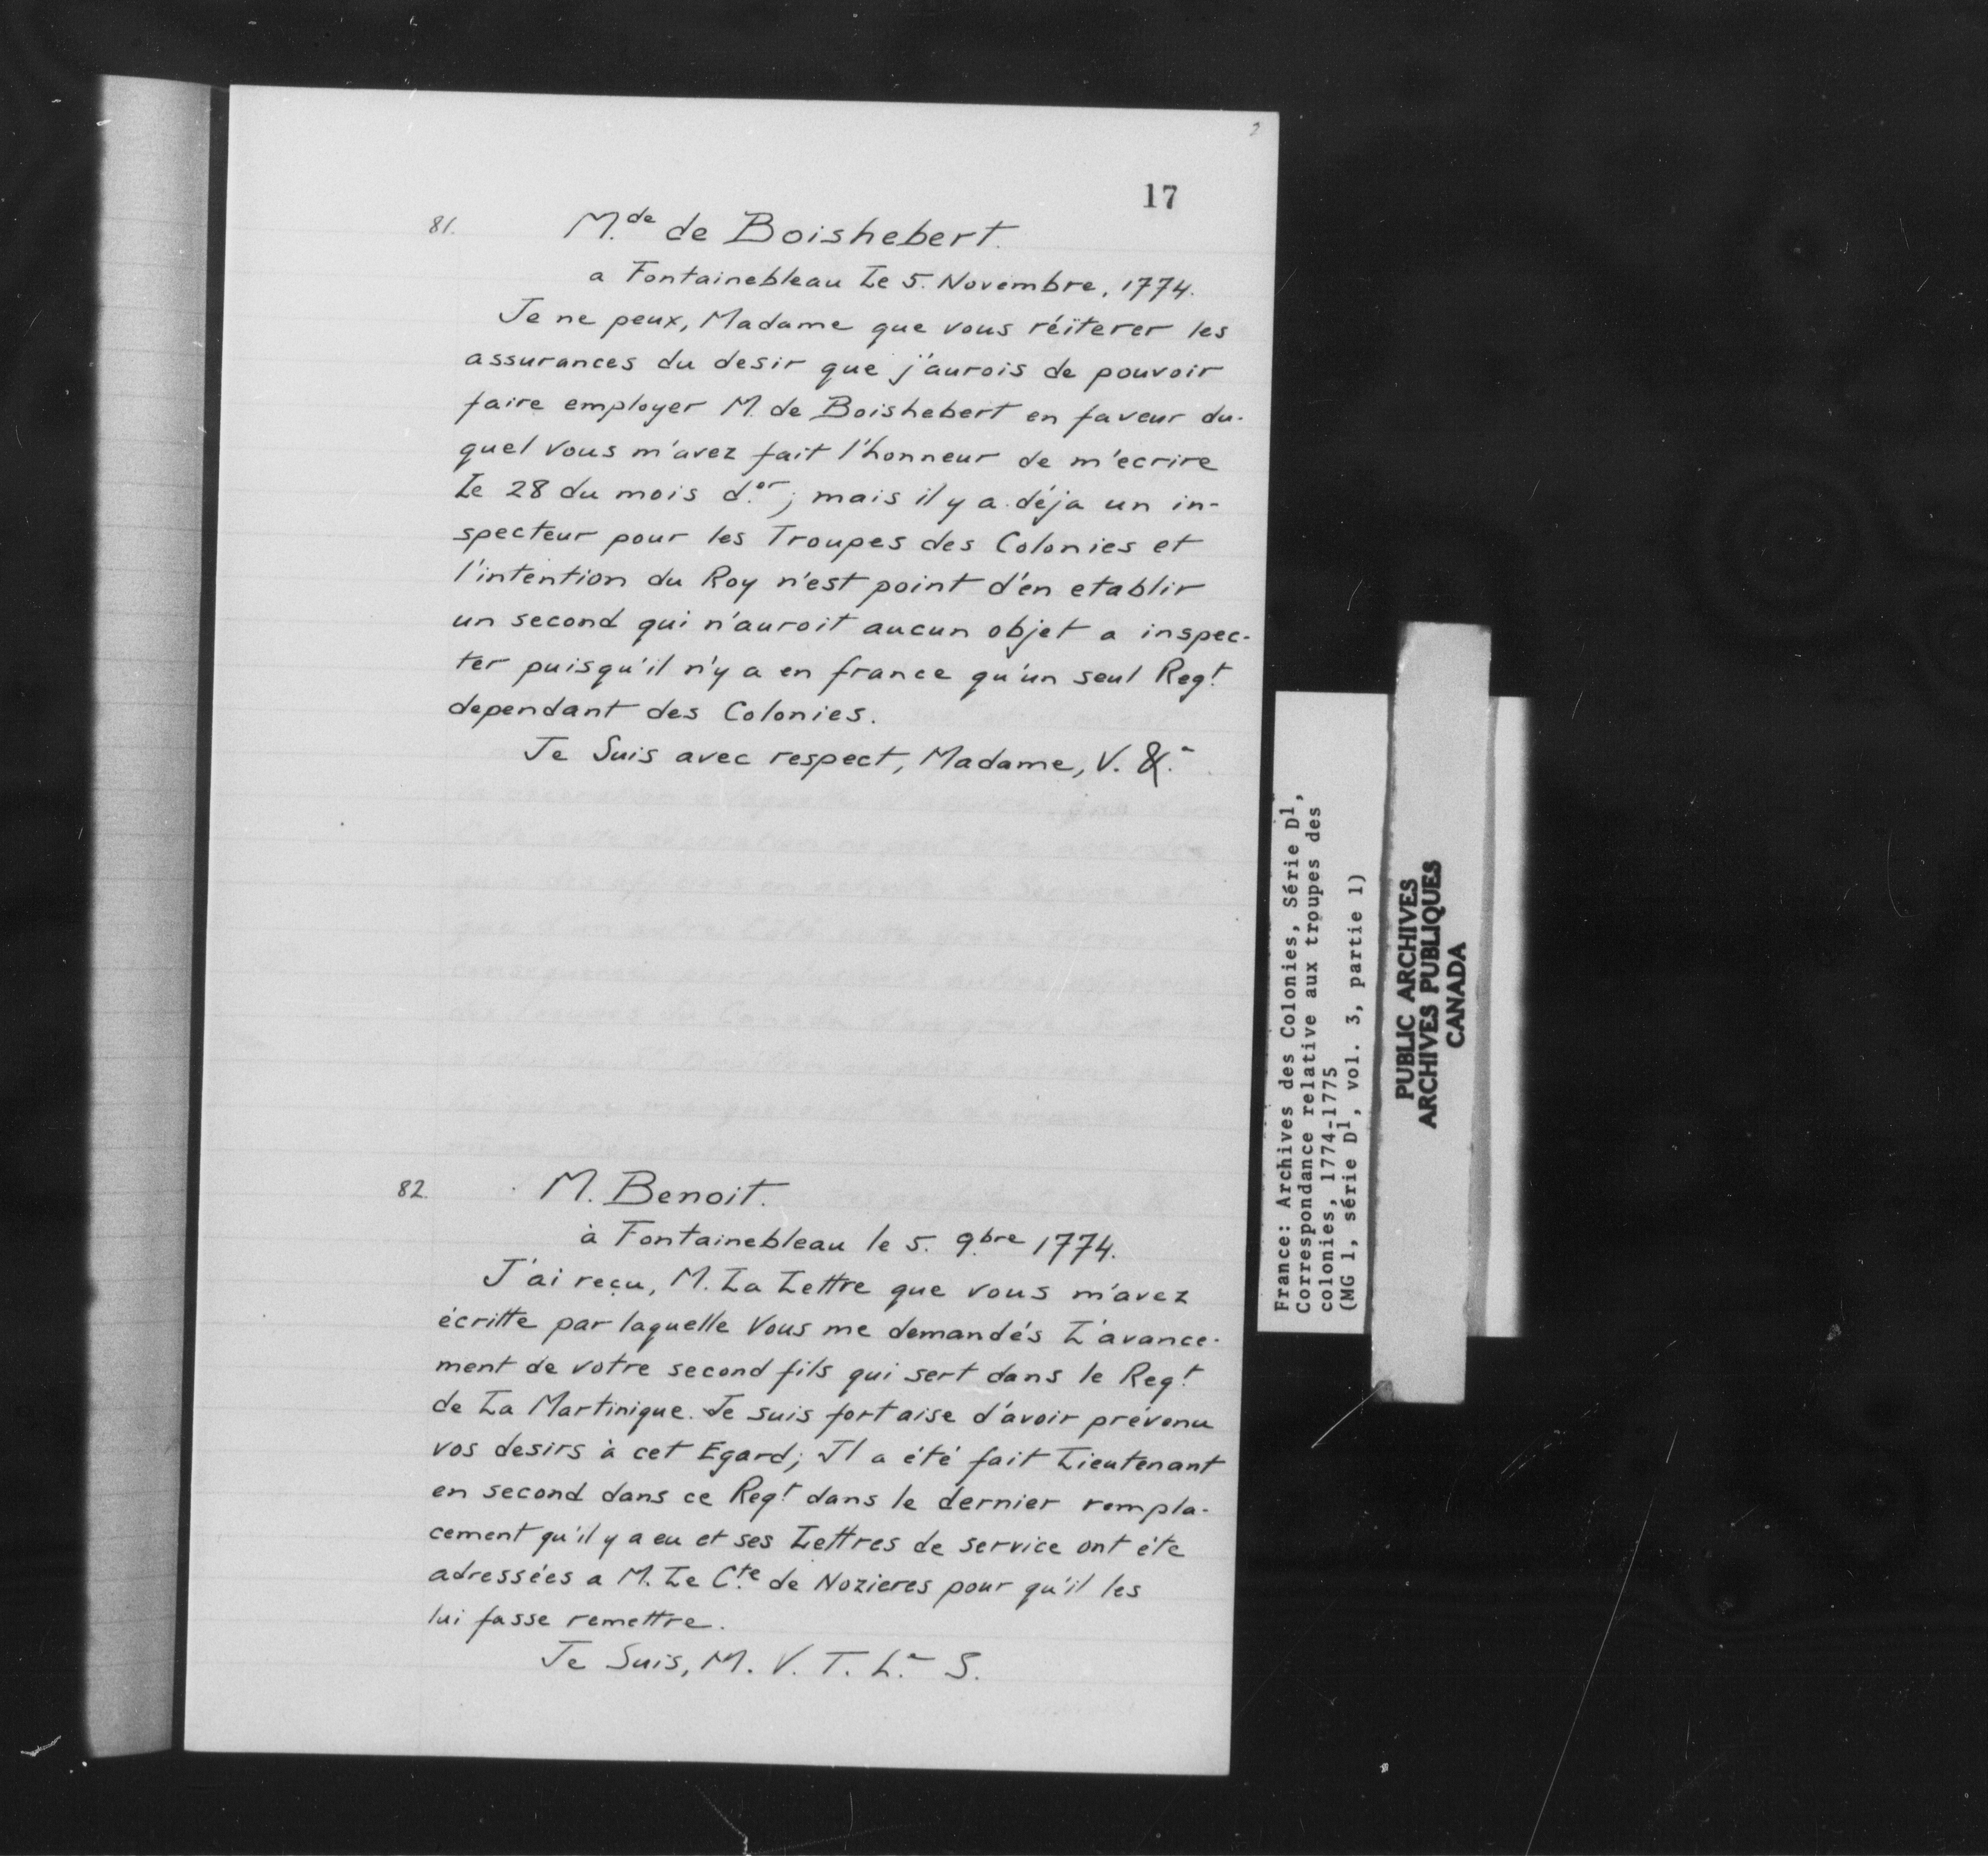 17
81. M.de de Boishebert.
a Fontainebleau Le 5. Novembre, 1774.
Je ne peux, Madame que vous réïterer les
assurances du desir que j'aurois de pouvoir
faire employer M. de Boishebert en faveur du-
quel vous m'avez fait l'honneur de m'ecrire
Le 28 du mois d.er; mais il y a déja un in-
specteur pour les Troupes des Colonies et
l'intention du Roy n'est point d'en etablir
un second qui n'auroit aucun objet a inspec-
ter puisqu'il n'y a en france qu'un seul Reg.t
dependant des Colonies.
Je Suis avec respect, Madame, V. &.a
82. M. Benoit.
à Fontainebleau le 5. 9.bre 1774.
J'ai reçu, M. La Lettre que vous m'avez
écritte par laquelle Vous me demandés L'avance-
ment de votre second fils qui sert dans le Reg.t
de La Martinique. Je suis fort aise d'avoir prévenu
vos desirs à cet Egard; Il a été fait Lieutenant
en second dans ce Reg.t dans le dernier rempla-
cement qu'il y a eu et ses Lettres de service ont éte
adressées a M. Le C.te de Nozieres pour qu'il les
lui fasse remettre.
Je Suis, M. V. T. h.- S.
France: Archives des Colonies, Série D1,
Correspondance relative aux troupes des
colonies, 1774-1775
(MG 1, série D1, vol. 3, partie 1)
PUBLIC ARCHIVES
ARCHIVES PUBLIQUES
CANADA